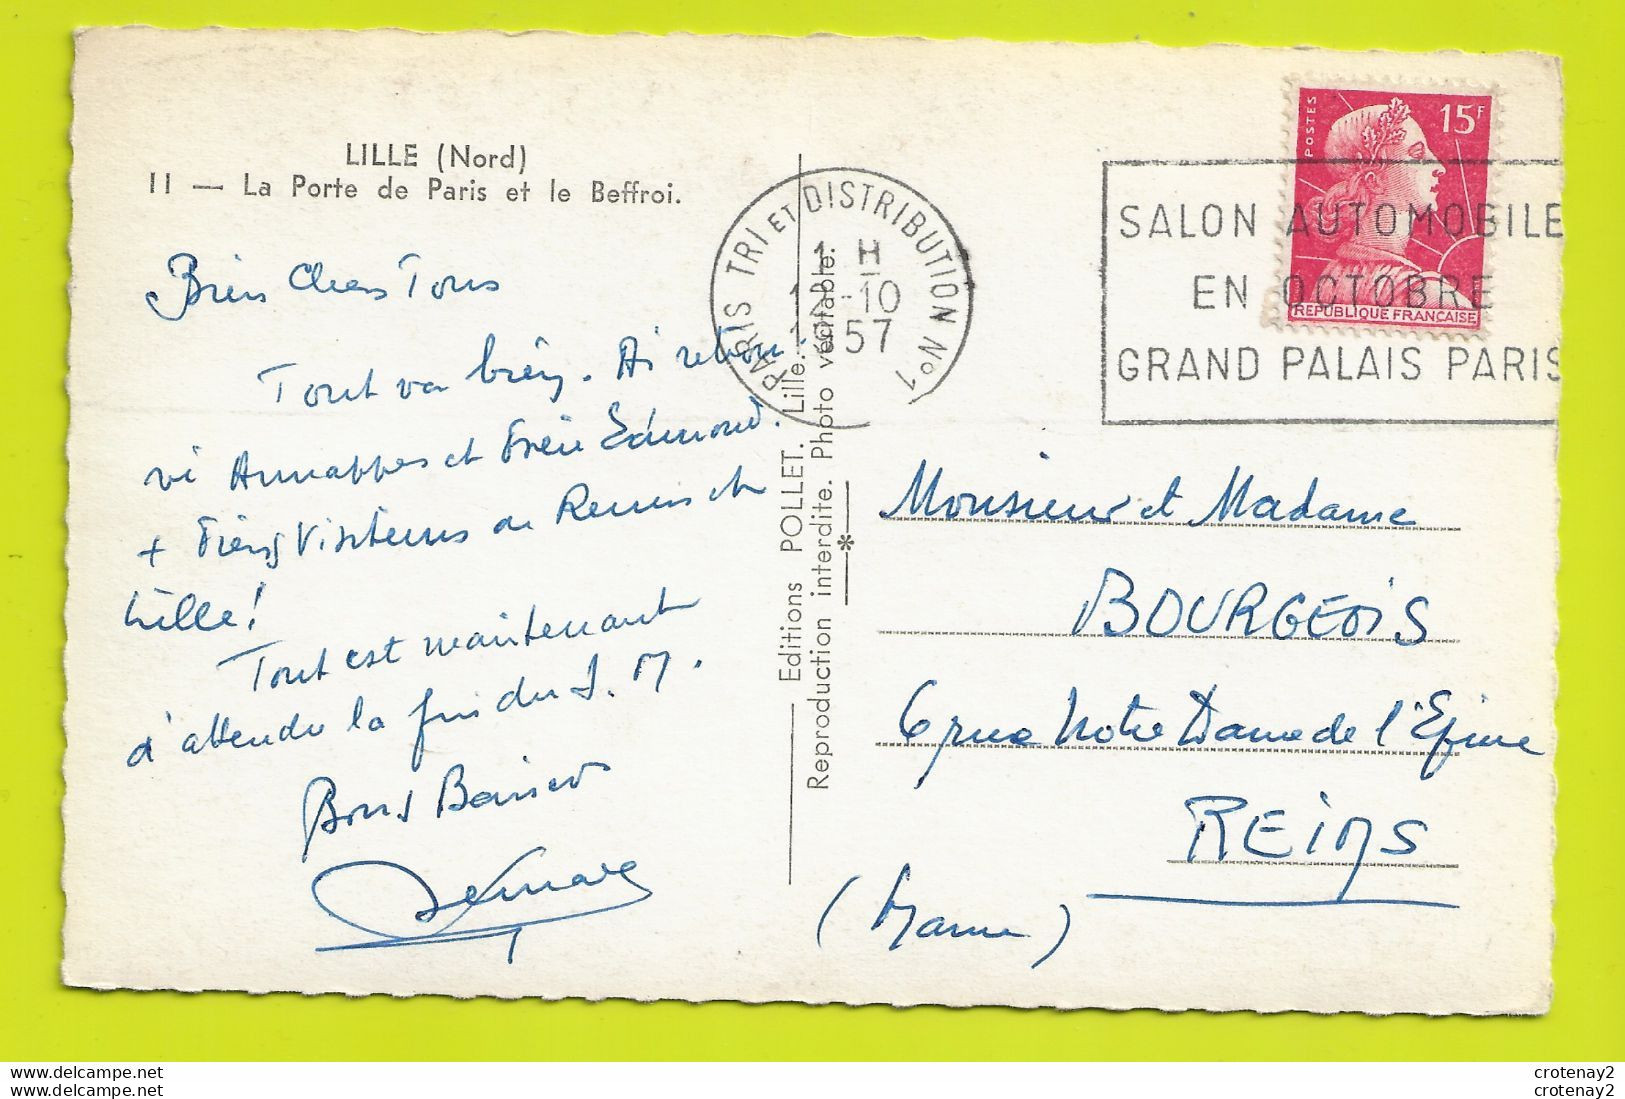 LILLE (Nord)
11 — La Porte de Paris et le Beffroi.
Bien Chers Tous
Tout va bien. Ai retrou-
vé Annappes et Frère Edmond.
+ Frères Visiteurs de Reims et
Lille!
Tout est maintenant
à attendre la fin du S. M.
Bons Baisers
Editions POLLET. Lille.
Reproduction interdite. Photo véritable.
PARIS TRI ET DISTRIBUTION N°1
1 H
12-10
1957
POSTES
15F
REPUBLIQUE FRANCAISE
SALON AUTOMOBILE
EN OCTOBRE
GRAND PALAIS PARIS
Monsieur et Madame
BOURGEOIS
6 rue Notre Dame de l'Epine
REIMS
(Marne)
crotenay2
crotenay2